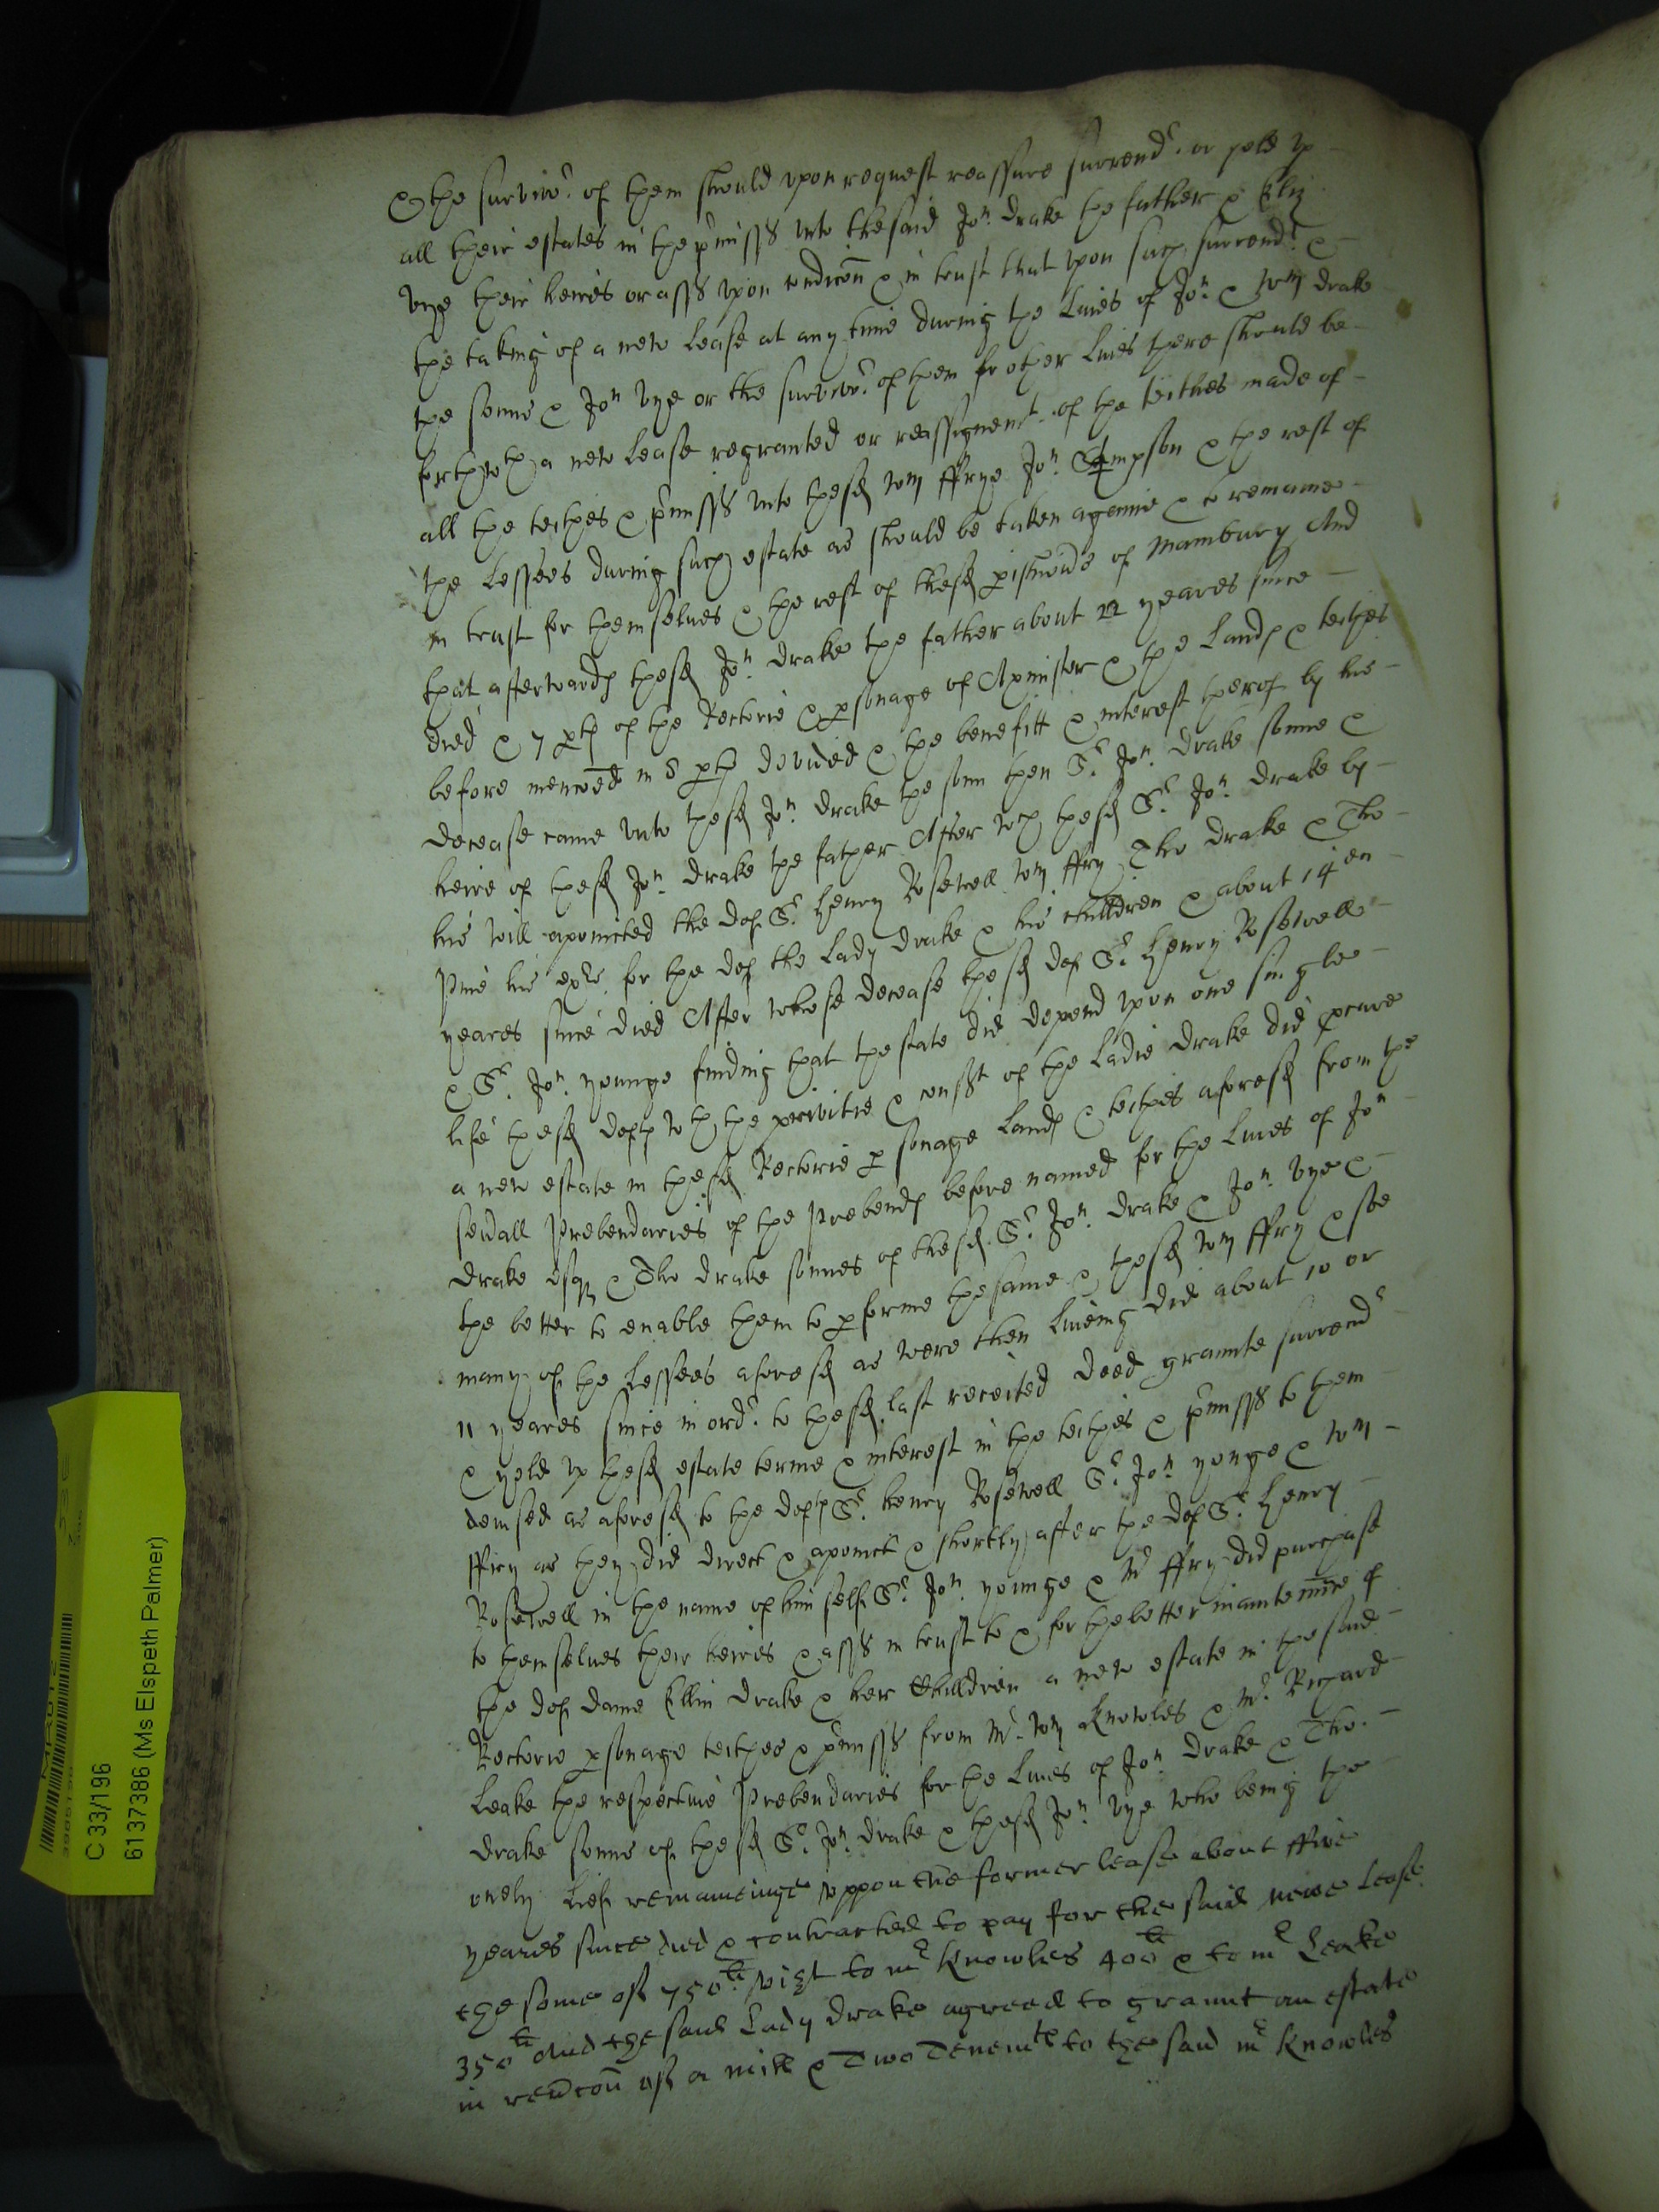 & the survivor of them should vpon request reassure surrendr or yeld vp
all their estates in the pmisss vnto the said Jon Drake the father & Eliz
Vye their heires or asss vpon condicon & in trust that vpon such surrendr &
the taking of a new lease at any time during the Lives of Jon & Wm Drake
the sonne & Jon Vye or the survivor of them for other lives there should be
forthwth a new lease regranted or reassignemt of the teithes made of
all the teithes & pmisss vnto the sd Wm ffrye Jon Sampson & the rest of
the Lessees during such estate as should be taken againe & to remaine
in trust for themselues & the rest of the sd pishon's of Mambury And
that afterwards the sd Jon Drake the father about 22 yeares since
died & 7 pts of the Rectorie & psonage of Axmister & the Lands & teithes
before mencoed in 8 pts devided & the benefitt & interest therof by his
decease came vnto the sd Jon Drake the sonn then Sr Jon Drake sonne &
heire of the sd Jon Drake the father After wch the sd Sr Jon Drake by
his will apointed the def Sr Henry Rosewell Wm ffry Tho Drake & Tho
Pine his exrs for the def the Lady Drake & his children & about 14en
yeares since died After whose decease the sd def Sr Henry Rosewell
& Sr Jon Younge finding that the state did depend vpon one single
life the sd defts wth the privitie & consst of the Ladie Drake did pcure
a new estate in the sd Rectorie psonage lands & teithes aforesd from the
sevall Prebendaries of the Prebends before named for the Lives of Jon
Drake esqr & Tho Drake sonnes of the sd Sr Jon Drake & Jon Vye &
the better to enable them to pforme the same & the sd Wm ffry & soe
many of the Lessees aforesd as were then liueing did about 10 or
11 yeares since in ordr to the sd last receited deed graunte surrendr
& yeld vp the sd estate terme & interest in the teithes & pmisss to them
demised as aforesd to the defts Sr Henry Rosewell Sr Jon Yonge & Wm
ffry as they did direct & apoinct & shortly after the def Sr Henry
Rosewell in the name of him self Sr Jon Younge & Mr ffry did purchase
to themselues their heires & asss in trust to & for the better maintennce of
the def dame Ellin Drake & her Children a new estate in the said
Rectorie psonage teithes & pmisss from Mr Wm Knowles & Mr Richard
Leake the respectiue Prebendaries for the Liues of Jon Drake & Tho.
Drake sonns of the sd Sr Jon Drake & the sd Jon Vye who being the
onely lief remaineinge vppon the former lease about ffive
yeares since died & contracted to pay for the said newe lease
the some of 750li vizt to mr Knowles 400li & to mr Leake
350li And the said Lady Drake agreed to graunt an estate
in revcon of a mill & Two Tenemts to the said mr Knowles
C 33/196
61373386 (Ms Elspeth Palmer)